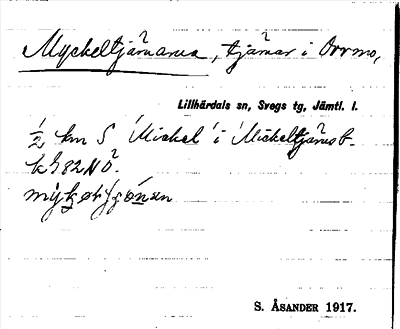 Myckeltjärnarna, tjärnar i Orrmo,
Lillhärdals sn, Svegs tg, Jämtl. l.
½ km S 'Mickel' i Mickeltjärnsb.
k 982 NÖ.
S. ÅSANDER 1917.